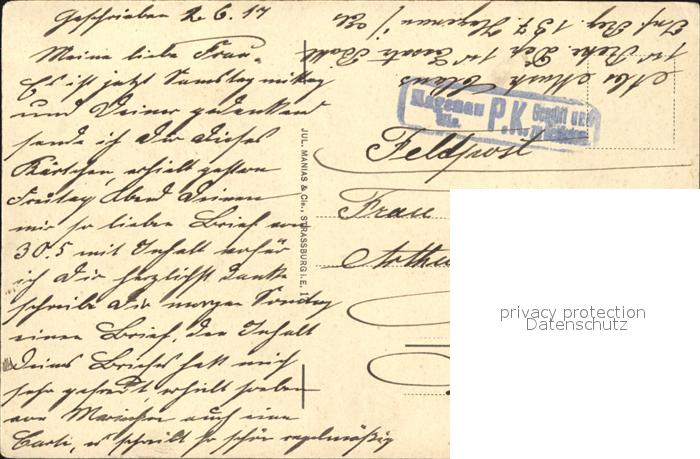 Geschrieben 2.6.17
Meine liebe Frau.
Es ist jetzt Samstag mittag
und Deiner gedenkend
sende ich Dir dieses
Kärtchen, erhielt gestern
Freitag Abend Deinen
mir so lieben Brief vom
30.5 mit Inhalt wofür
ich Dir herzlichst danke
schreibe Dir morgen Sonntag
einen Brief, der Inhalt
Deines Briefes hatt mich
sehr gefreut, erhielt soeben
von auch eine
Carte, schreibt so schön regelmäßig
JUL. MANIAS & Cie., STRASSBURG i. E.
Abs
Ers. Batl
Inf. Reg. 137 Hagenau i/Els
Hagenau P.K. Geprüft und
Els.
Feldpost
Frau
privacy protection
Datenschutz